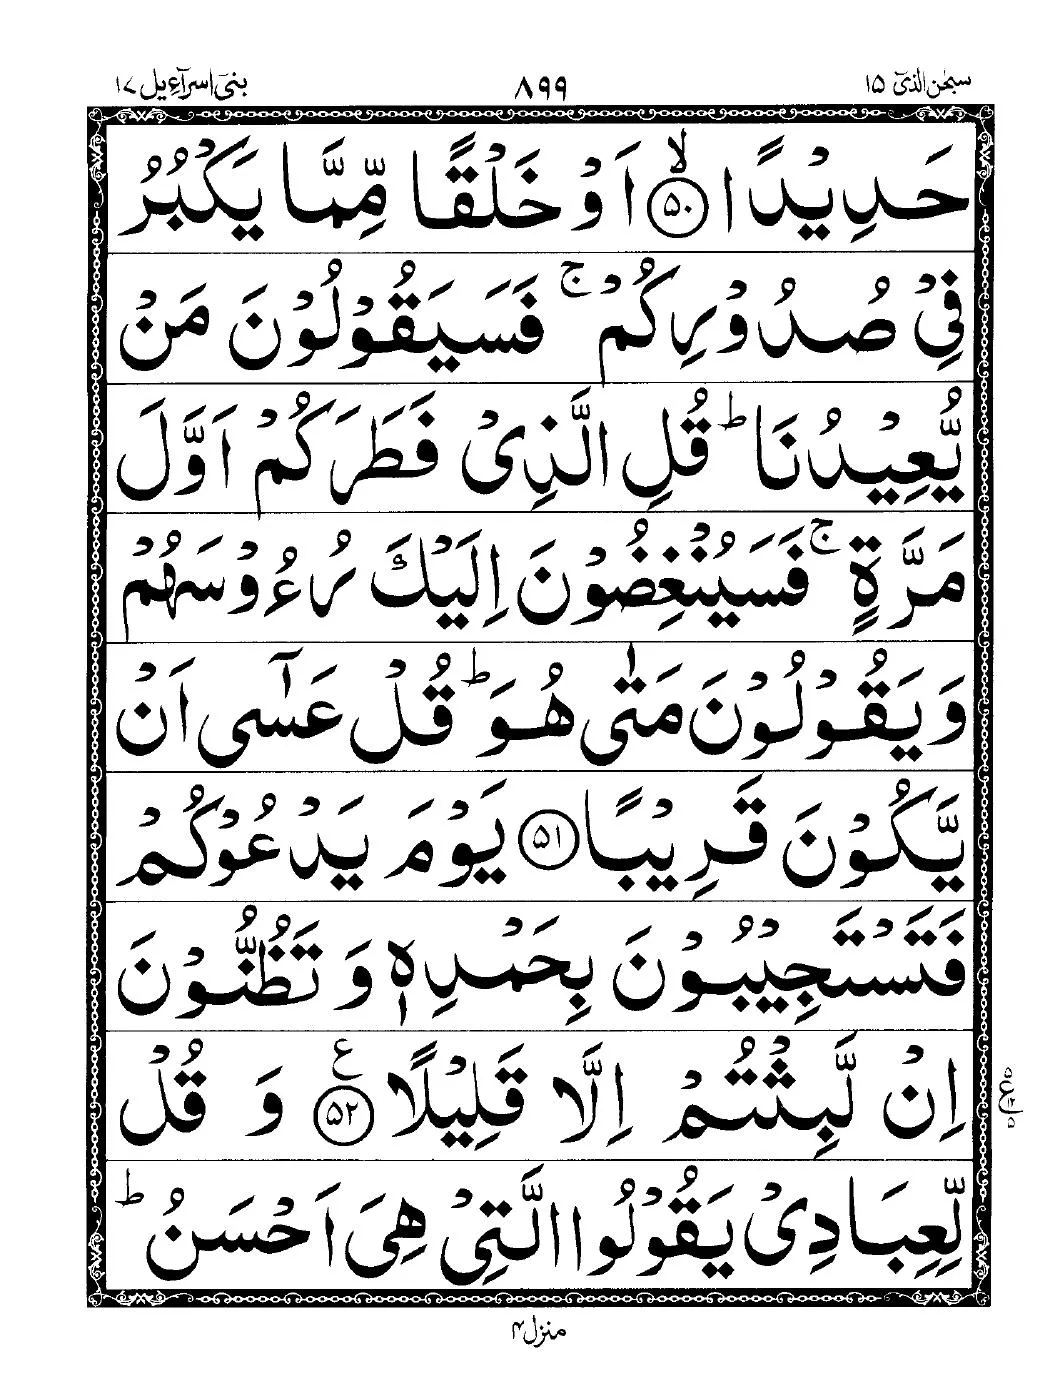 سبحٰن الذیٓ ۱۵
۸۹۹
بنیٓ اسرآءیل ۱۷
حَدِیْدًا ﴿۵۰﴾ۙ اَوْ خَلْقًا مِّمَّا یَكْبُرُ
فِیْ صُدُوْرِكُمْ ۚ فَسَیَقُوْلُوْنَ مَنْ
یُّعِیْدُنَا ؕ قُلِ الَّذِیْ فَطَرَكُمْ اَوَّلَ
مَرَّةٍ ۚ فَسَیُنْغِضُوْنَ اِلَیْكَ رُءُوْسَهُمْ
وَ یَقُوْلُوْنَ مَتٰی هُوَ ؕ قُلْ عَسٰۤی اَنْ
یَّكُوْنَ قَرِیْبًا ﴿۵۱﴾ یَوْمَ یَدْعُوْكُمْ
فَتَسْتَجِیْبُوْنَ بِحَمْدِهٖ وَ تَظُنُّوْنَ
اِنْ لَّبِثْتُمْ اِلَّا قَلِیْلًا ﴿۵۲﴾ ع وَ قُلْ
لِّعِبَادِیْ یَقُوْلُوا الَّتِیْ هِیَ اَحْسَنُ ؕ
منزل ۴